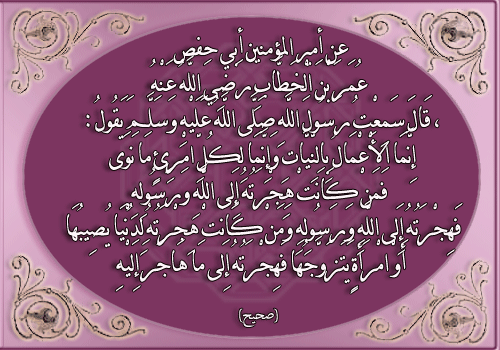 عَنْ أَمِيرِ الْمُؤْمِنِينَ أَبِي حَفْصٍ
عُمَرَ بْنِ الْخَطَّابِ رَضِيَ اللهُ عَنْهُ
، قَالَ سَمِعْتُ رَسُولَ اللهِ صَلَّى اللهُ عَلَيْهِ وَسَلَّمَ يَقُولُ :
إِنَّمَا الْأَعْمَالُ بِالنِّيَّاتِ وَإِنَّمَا لِكُلِّ امْرِئٍ مَا نَوَى
فَمَنْ كَانَتْ هِجْرَتُهُ إِلَى اللهِ وَرَسُولِهِ
فَهِجْرَتُهُ إِلَى اللهِ وَرَسُولِهِ وَمَنْ كَانَتْ هِجْرَتُهُ لِدُنْيَا يُصِيبُهَا
أَوِ امْرَأَةٍ يَتَزَوَّجُهَا فَهِجْرَتُهُ إِلَى مَا هَاجَرَ إِلَيْهِ
(صحيح)